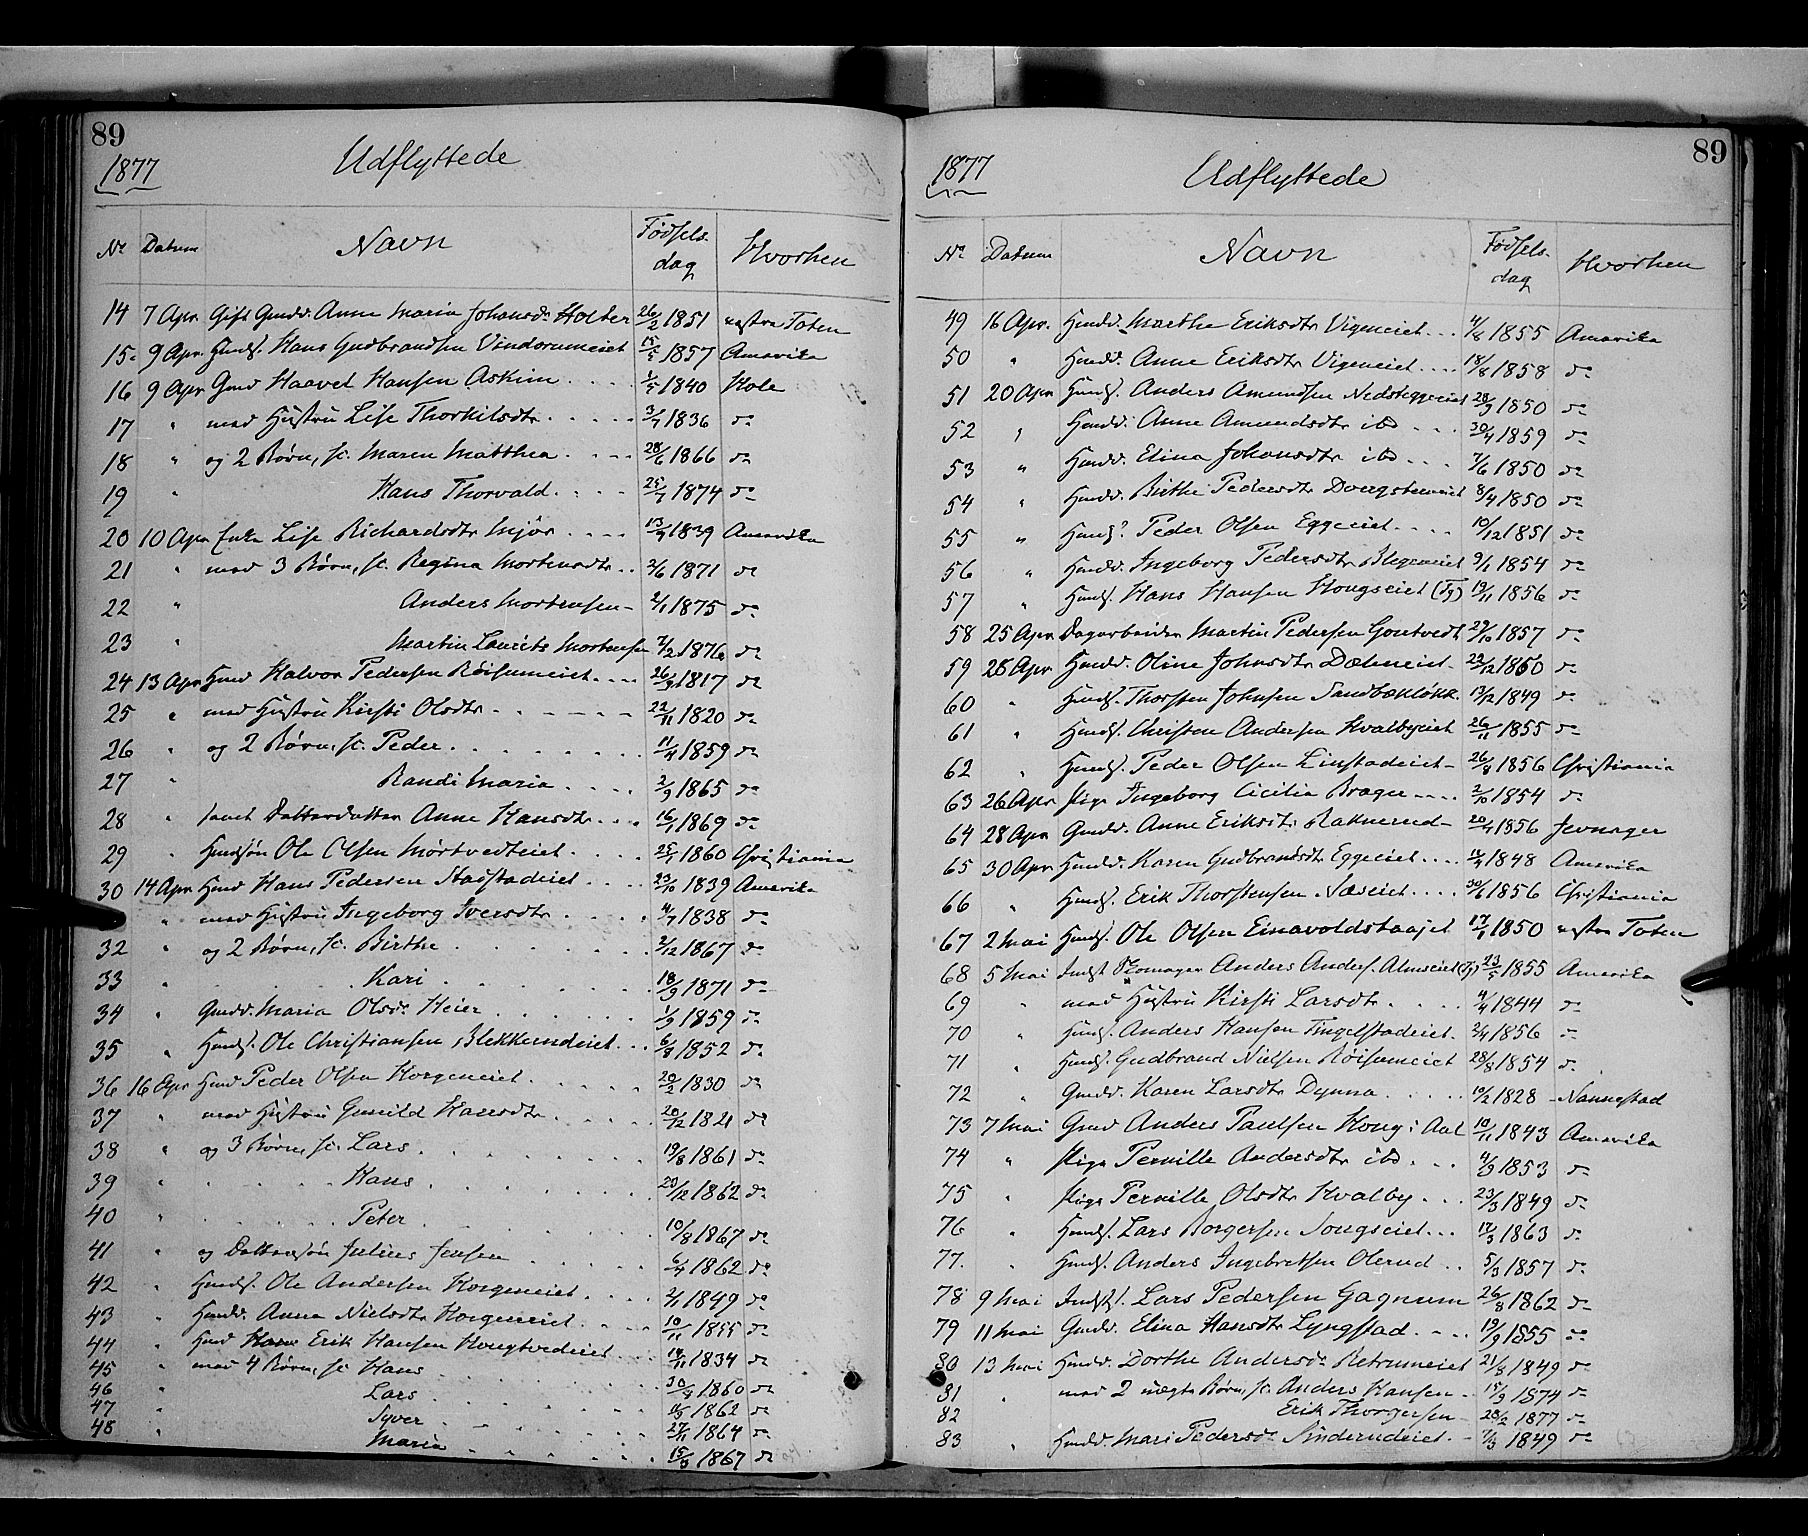 89
1877 Udflyttede
No Datum Navn Fødsels- dag Hvorhen
14 7 Apr. Gift Gmdd. Anne Maria Johansdr Holter 26/2 1851 vestre Toten
15 9 Apr. Hmds. Hans Gudbrandsen Vindorumeiet 15/5 1857 Amerika
16 9 Apr Gmd Haavel Hansen Askim 1/5 1840 Hole
17 " med Hustru Lise Thorkilsdtr 3/7 1836 do
18 " og 2 Børn, sc. Maren Matthea 28/6 1866 do
19 " Hans Thorvald 25/7 1874 do
20 10 Apr Enke Lise Richardsdtr Mjør 13/9 1839 Amerika
21 " med 3 Børn, sc. Regina Mortensdtr 2/6 1871 do
22 " Anders Mortensen 2/1 1875 do
23 " Martin Laurits Mortensen 7/2 1876 do
24 13 Apr Hmd Halvor Pedersen Røisumeiet 26/3 1817 do
25 " med Hustru Kirsti Olsdtr 22/11 1820 do
26 " og 2 Børn, sc. Peder 11/4 1859 do
27 " Randi Maria 2/9 1865 do
28 " samt Datterdatter Anne Hansdtr 16/1 1869 do
29 " Hmdsøn Ole Olsen Mørtvedteiet 25/1 1860 Christiania
30 14 Apr Hmd Hans Pedersen Aastadeiet 23/10 1839 Amerika
" med Hustru Ingeborg Iversdtr 4/7 1838 do
32 " og 2 Børn, sc. Birthe 2/12 1867 do
33 " Kari 18/9 1871 do
34 " Gmdd. Maria Olsdr Heier 1/9 1859 do
35 " Hmds. Ole Christiansen Blekkerudeiet 6/8 1852 do
36 16 Apr Hmd Peder Olsen Horgeneiet 20/2 1830 do
37 " med Hustru Gunild Hansdtr 20/12 1821 do
38 " og 3 Børn, sc. Lars 19/8 1861 do
39 " Hans 20/12 1862 do
40 " Peter 10/8 1867 do
41 " og Dattersøn Julius Jensen 6/4 1862 do
42 " Hmds. Ole Andersen Horgeneiet 2/1 1849 do
43 " Hmdd. Anne Nielsdtr Horgeneiet 10/11 1855 do
44 " Hmd Erik Hansen Hongtvedeiet 14/11 1834 do
45 " med 4 Børn, sc Hans 30/4 1860 do
46 " Lars 11/5 1862 do
47 " Syver 27/11 1864 do
48 " Maria 15/3 1867 do
89
1877 Udflyttede
No Datum Navn Fødsels- dag Hvorhen
49 16 Apr. Hmdd. Marthe Eriksdtr Vigeneiet 4/8 1855 Amerika
50 " Hmdd. Anne Eriksdtr Vigeneiet 18/8 1858 do
51 20 Apr Hmds. Anders Amundsen Nedreggeeiet 28/9 1850 do
52 " Hmdd. Anne Amundsdtr ibd 30/4 1859 do
53 " Hmdd. Elina Johansdtr ibd 7/6 1850 do
54 " Hmdd. Birthe Pedersdtr 8/4 1850 do
55 " Hmds. Peder Olsen Eggeeiet 10/12 1851 do
56 " Hmdd. Ingeborg Pedersdtr Blegeneiet 9/1 1854 do
57 " Hmds. Hans Hansen Hongseiet (Tg) 19/11 1856 do
58 25 Apr Dagarbeider Martin Pedersen Gontvedt 27/10 1857 do
59 28 Apr Hmdd. Oline Johnsdtr Dæhneiet 22/12 1850 do
60 " Hmds. Thorsten Johnsen Sandbækløkk. 13/12 1849 do
61 " Hmds. Christen Andersen Hvalbyeiet 26/11 1855 do
62 " Hmds. Peder Olsen Linstadeiet 26/8 1856 Christiania
63 26 Apr Pige Ingeborg Cicilia Brager 2/10 1854 do
64 28 Apr Gmdd. Anne Eriksdtr Raknerud 20/4 1856 Jevnager
65 30 Apr Hmdd. Karen Gudbrandsdtr Eggeeiet 11/9 1848 Amerika
66 " Hmds. Erik Thorstensen Næseiet 30/6 1856 Christiania
67 2 Mai Hmds. Ole Olsen Einavoldstaajet 17/1 1850 vestre Toten
68 5 Mai Indst Skomager Anders Anders. Almseiet (Tg) 23/5 1855 Amerika
69 " med Hustru Kirsti Larsdtr 4/4 1844 do
70 " Hmds. Anders Hansen Tingelstadeiet 2/4 1856 do
71 " Hmds. Gudbrand Nielsen Røisumeiet 28/8 1854 do
72 " Gmdd. Karen Larsdtr Dynna 10/2 1828 Nannestad
73 7 Mai Gmd Anders Paulsen Hong i Aal 10/11 1843 Amerika
74 " Pige Pernille Andersdtr ibd. 4/9 1853 do
75 " Pige Pernille Olsdtr Hvalby 23/3 1849 do
76 " Hmds. Lars Borgersen Songseiet 12/3 1863 do
77. " Hmds. Anders Ingebretsen Olerud 5/3 1857 do
78 9 Mai Indst. Lars Pedersen Gagnum 26/8 1862 do
79 11 Mai Gmdd. Elina Hansdtr Lyngstad 19/9 1855 do
80 13 Mai Hmdd. Dorthe Andersdr Retrumeiet 21/3 1849 do
81 " med 2 uægte Børn, sc. Anders Hansen 15/9 1874 do
82 Erik Thorgersen 28/2 1877 do
83 " Hmdd. Mari Pedersdr Sinderudeiet 7/3 1849 do